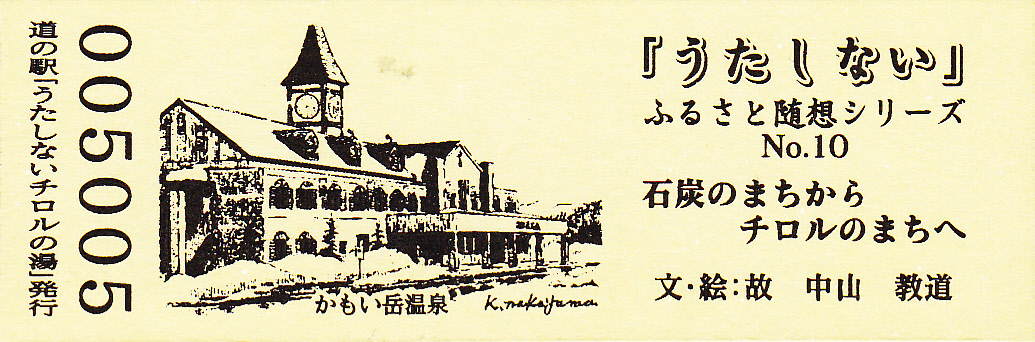 道の駅「うたしないチロルの湯」発行
005005
かもい岳温泉
K.nakayama
『うたしない』
ふるさと随想シリーズ
No.10
石炭のまちから
チロルのまちへ
文・絵:故 中山 教道